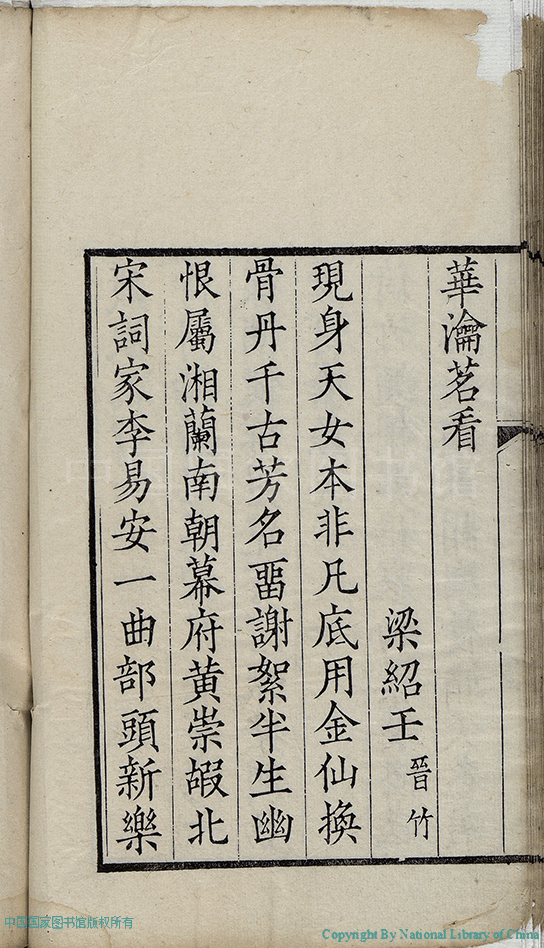 華瀹茗看
梁紹壬晉竹
現身天女本非凡底用金仙換
骨丹千古芳名畱謝絮半生幽
恨屬湘蘭南朝幕府黃崇嘏北
宋詞家李易安一曲部頭新樂
中国国家图书馆版权所有
Copyright By National Library of China